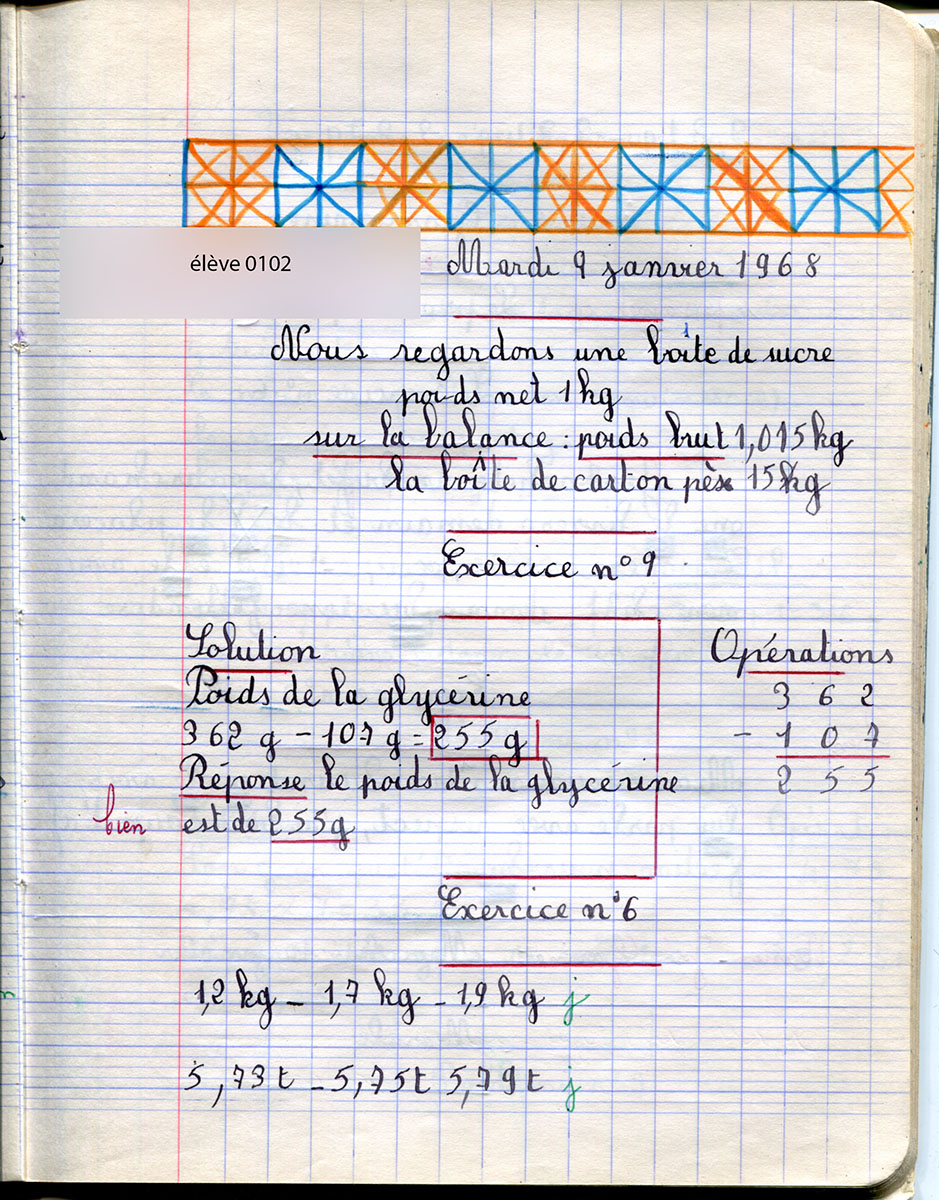 élève 0102
Mardi 9 janvier 1968
Nous regardons une boîte de sucre
poids net 1 kg
sur la balance : poids brut 1,015 kg
la boîte de carton pès 15 kg
Exercice n° 9
Solution
Poids de la glycérine
362 g - 107 g = 255 g
Réponse le poids de la glycérine
bien est de 255g
Opérations
3 6 2
- 1 0 7
2 5 5
Exercice n°6
1,2 kg - 1,7 kg - 1,9 kg j
5,73 t - 5,75t 5,79t j